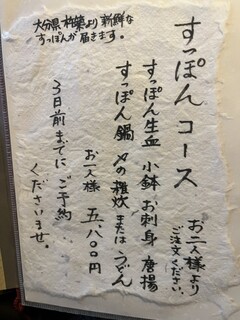 大分県 杵築より 新鮮な
すっぽんが届きます。
すっぽん コース
お二人様より
ご注文ください。
すっぽん生血 小鉢 お刺身 唐揚
すっぽん鍋 〆の雑炊 または うどん
お一人様 五、八〇〇円
3日前までに ご予約
くださいませ。